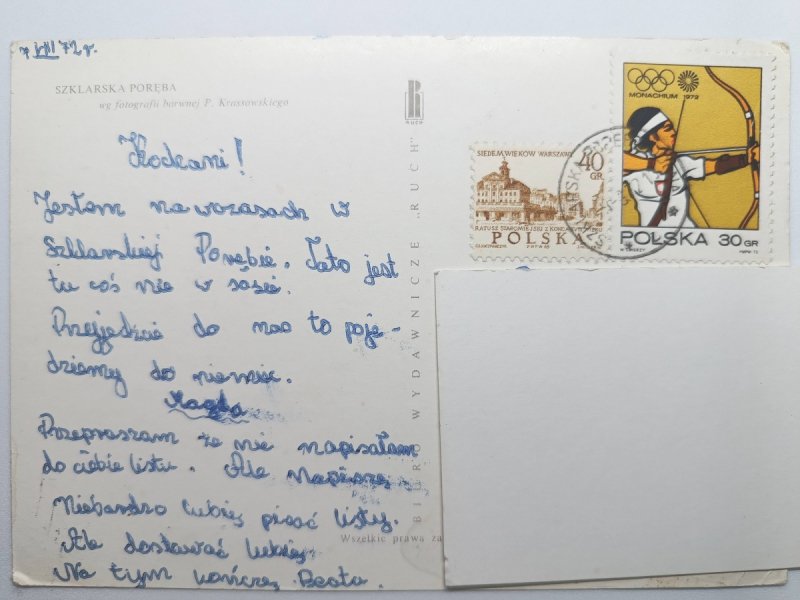 7 VIII 72 r.
SZKLARSKA PORĘBA
wg fotografii barwnej P. Krassowskiego
RUCH
Kochani!
Jestem na wczasach w
Szklarskiej Porębie. Lato jest
tu coś nie w sosie.
Przyjedźcie do nas to poje-
dziemy do niemiec.
Magda
Przepraszam że nie napisałam
do ciebie listu. Ale napiszę
Niebardzo lubię pisać listy.
Ale dostawać lubię.
Na tym kończę Beata.
BIURO WYDAWNICZE „RUCH"
Wszelkie prawa za
SIEDEM WIEKÓW WARSZAWY
40 GR
RATUSZ STAROMIEJSKI Z KOŃCA
POLSKA
MONACHIUM 1972
POLSKA 30 GR